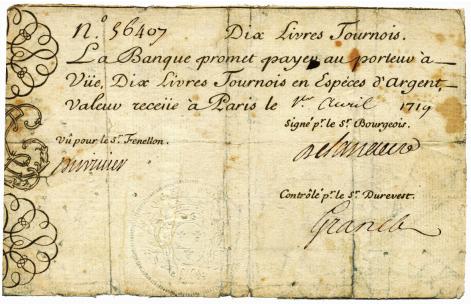 N.º 56407 Dix Livres Tournois.
La Banque promet payer au porteur à
Vüe, Dix Livres Tournois en Espèces d'Argent,
valeur receüe à Paris le 1.er Avril 1719
Signé p.r le S.r Bourgeois.
Vû pour le S.r Fenellon.
Contrôlé p.r le S.r Durevest.
Granet